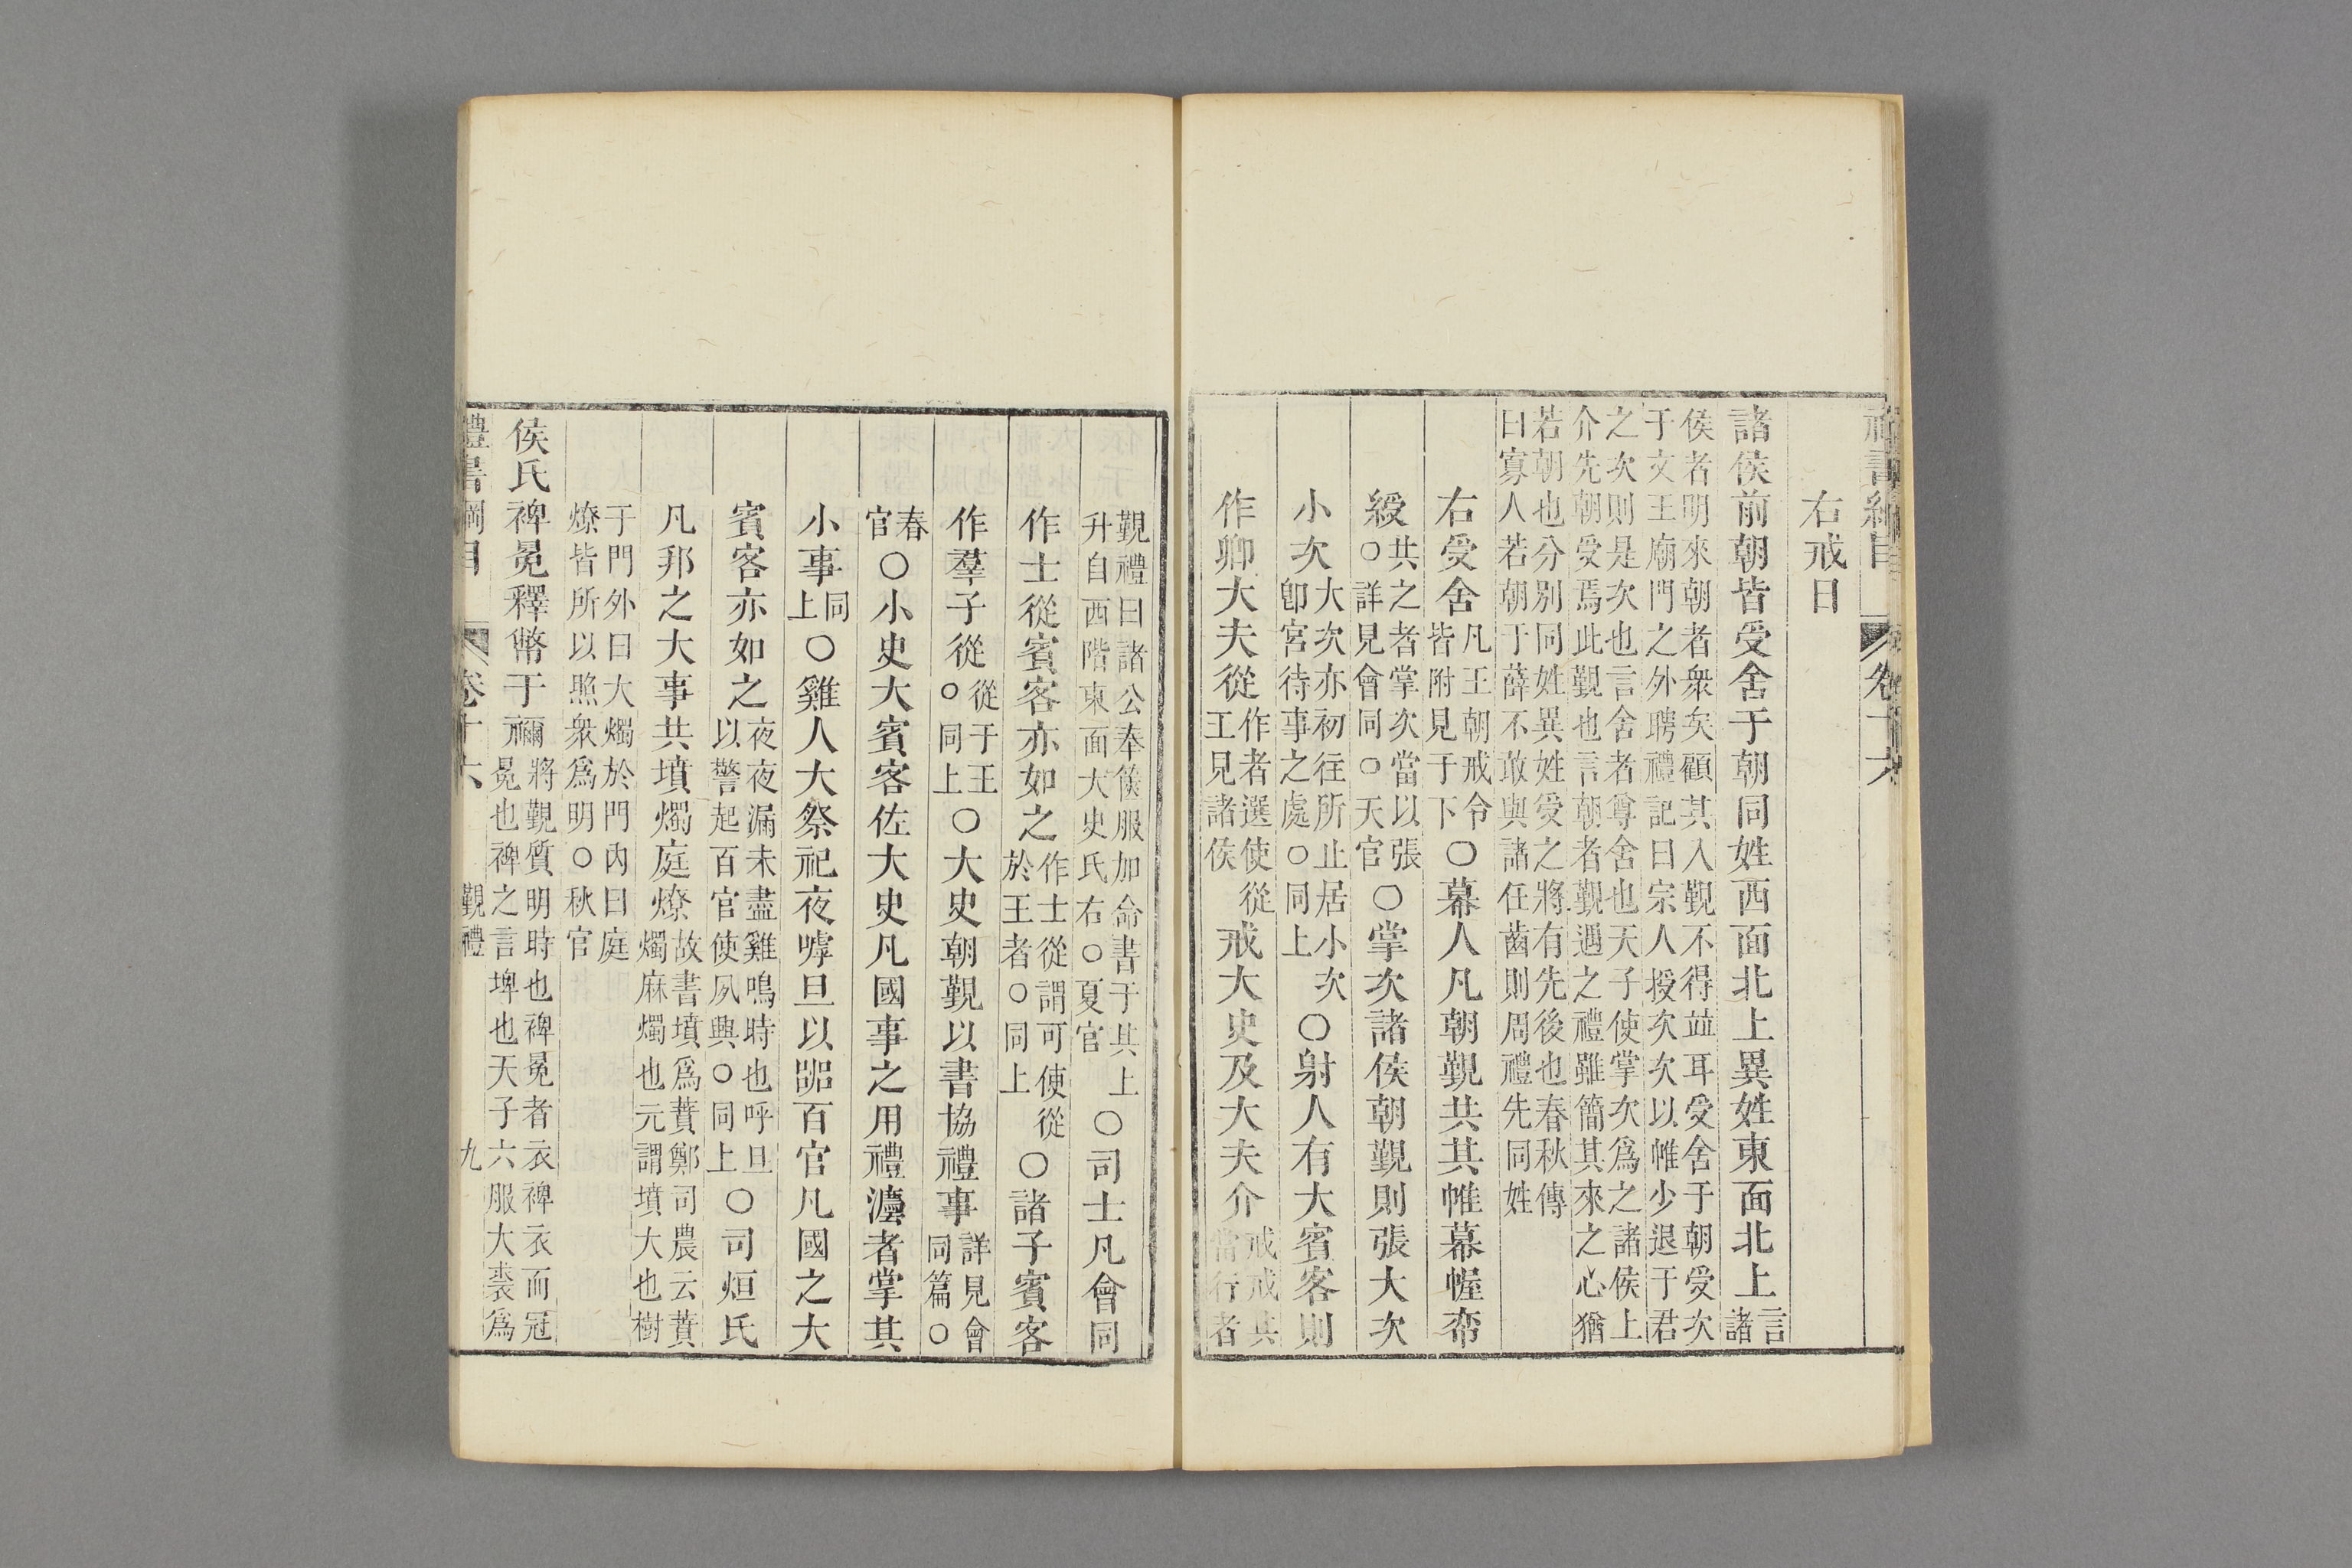 禮書綱目　卷十六
右戒日
諸侯前朝皆受舍于朝同姓西面北上異姓東面北上言諸
侯者明來朝者衆矣顧其入覲不得並耳受舍于朝受次
于文王廟門之外聘禮記曰宗人授次次以帷少退于君
之次則是次也言舍者尊舍也天子使掌次爲之諸侯上
介先朝受焉此覲也言朝者覲遇之禮雖簡其來之心猶
若朝也分別同姓異姓受之將有先後也春秋傳
曰寡人若朝于薛不敢與諸任齒則周禮先同姓
右受舍凡王朝戒令皆附見于下○幕人凡朝覲共其帷幕幄帟
綬共之者掌次當以張○詳見會同○天官○掌次諸侯朝覲則張大次
小次大次亦初往所止居小次卽宮待事之處○同上○射人有大賓客則
作卿大夫從作者選使從王見諸侯戒大史及大夫介戒戒其當行者
覲禮曰諸公奉篋服加命書于其上
升自西階東面大史氏右○夏官○司士凡會同
作士從賓客亦如之作士從謂可使從於王者○同上○諸子賓客
作羣子從從于王○同上○大史朝覲以書協禮事詳見會同篇○
春官○小史大賓客佐大史凡國事之用禮灋者掌其
小事同上○雞人大祭祀夜嘑旦以嘂百官凡國之大
賓客亦如之夜夜漏未盡雞鳴時也呼旦以警起百官使夙興○同上○司烜氏
凡邦之大事共墳燭庭燎故書墳爲蕡鄭司農云蕡燭麻燭也元謂墳大也樹
于門外曰大燭於門內曰庭
燎皆所以照衆爲明○秋官
侯氏裨冕釋幣于禰將覲質明時也裨冕者衣裨衣而冠冕也裨之言埤也天子六服大裘爲
禮書綱目　卷十六　覲禮　九